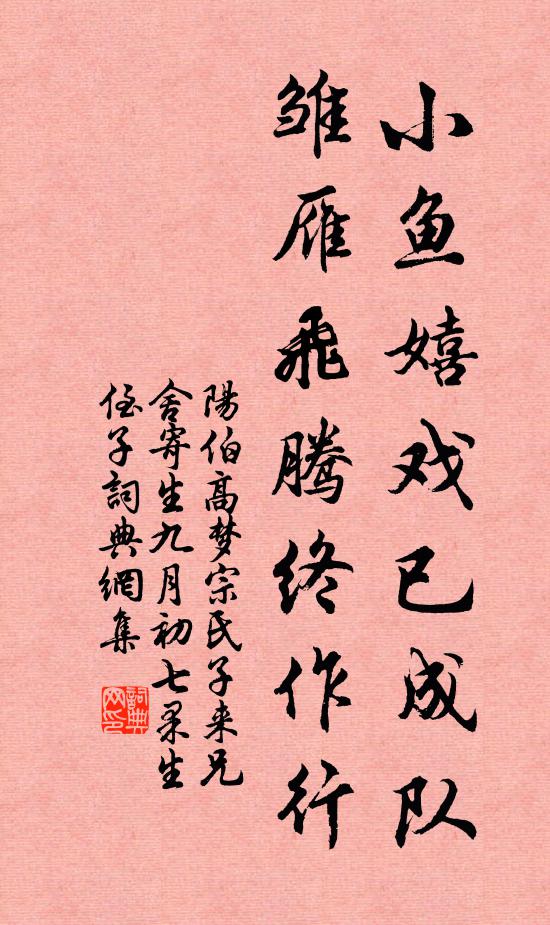 小鱼嬉戏已成队
雏雁飞腾终作行
陽伯高梦宗氏子来兄
舍寄生九月初七果生
侄子詞典網集
詞典网印